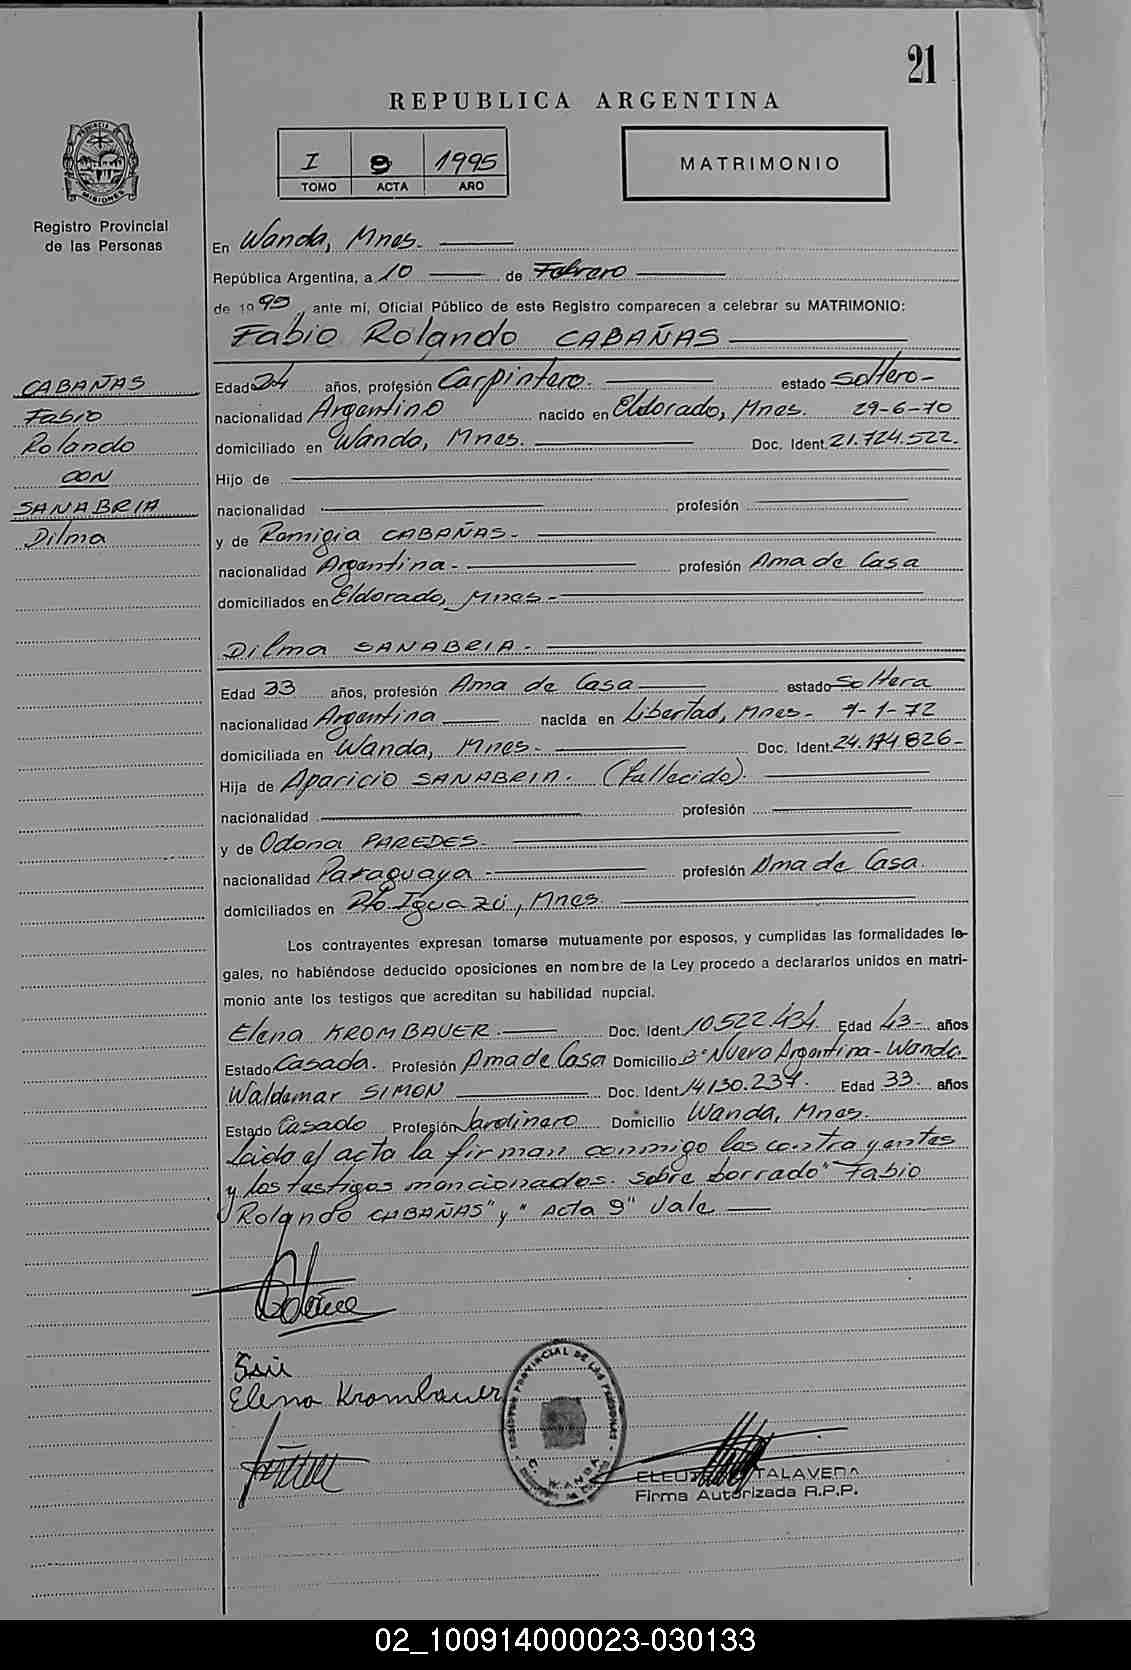 21
REPUBLICA ARGENTINA
I 9 1995
TOMO ACTA AÑO
MATRIMONIO
Registro Provincial
de las Personas
En Wanda, Mnes.
República Argentina, a 10 de Febrero
de 1995, ante mí, Oficial Público de este Registro comparecen a celebrar su MATRIMONIO:
Fabio Rolando CABAÑAS
CABAÑAS
Fabio
Rolando
CON
SANABRIA
Dilma
Edad 24 años, profesión Carpintero. estado soltero-
nacionalidad Argentino nacido en Eldorado, Mnes. 29-6-70
domiciliado en Wanda, Mnes. Doc. Ident. 21.724.522.
Hijo de
nacionalidad profesión
y de Remigia CABAÑAS.
nacionalidad Argentina- profesión Ama de Casa
domiciliados en Eldorado, Mnes-
Dilma SANABRIA.
Edad 33 años, profesión Ama de Casa estado Soltera
nacionalidad Argentina nacida en Libertad, Mnes- 7-1-72
domiciliada en Wanda, Mnes- Doc. Ident. 24.174.826-
Hija de Aparicio SANABRIA. (fallecido).
nacionalidad profesión
y de Odona PAREDES-
nacionalidad Paraguaya- profesión Ama de Casa.
domiciliados en Pto. Iguazú, Mnes.
Los contrayentes expresan tomarse mutuamente por esposos, y cumplidas las formalidades le-
gales, no habiéndose deducido oposiciones en nombre de la Ley procedo a declararlos unidos en matri-
monio ante los testigos que acreditan su habilidad nupcial.
Elena KROMBAUER- Doc. Ident. 10.522.434. Edad 43- años
Estado Casada. Profesión Ama de Casa Domicilio B° Nueva Argentina-Wanda.
Waldemar SIMON Doc. Ident. 14.130.237. Edad 33. años
Estado Casado Profesión Jardinero Domicilio Wanda, Mnes.
Leida el acta la firman conmigo los contrayentes
y los testigos mencionados. Sobre borrado "Fabio
Rolando CABAÑAS" y "Acta 9" Vale
Elena Krombauer
TALAVERA
Firma Autorizada R.P.P.
02_100914000023-030133